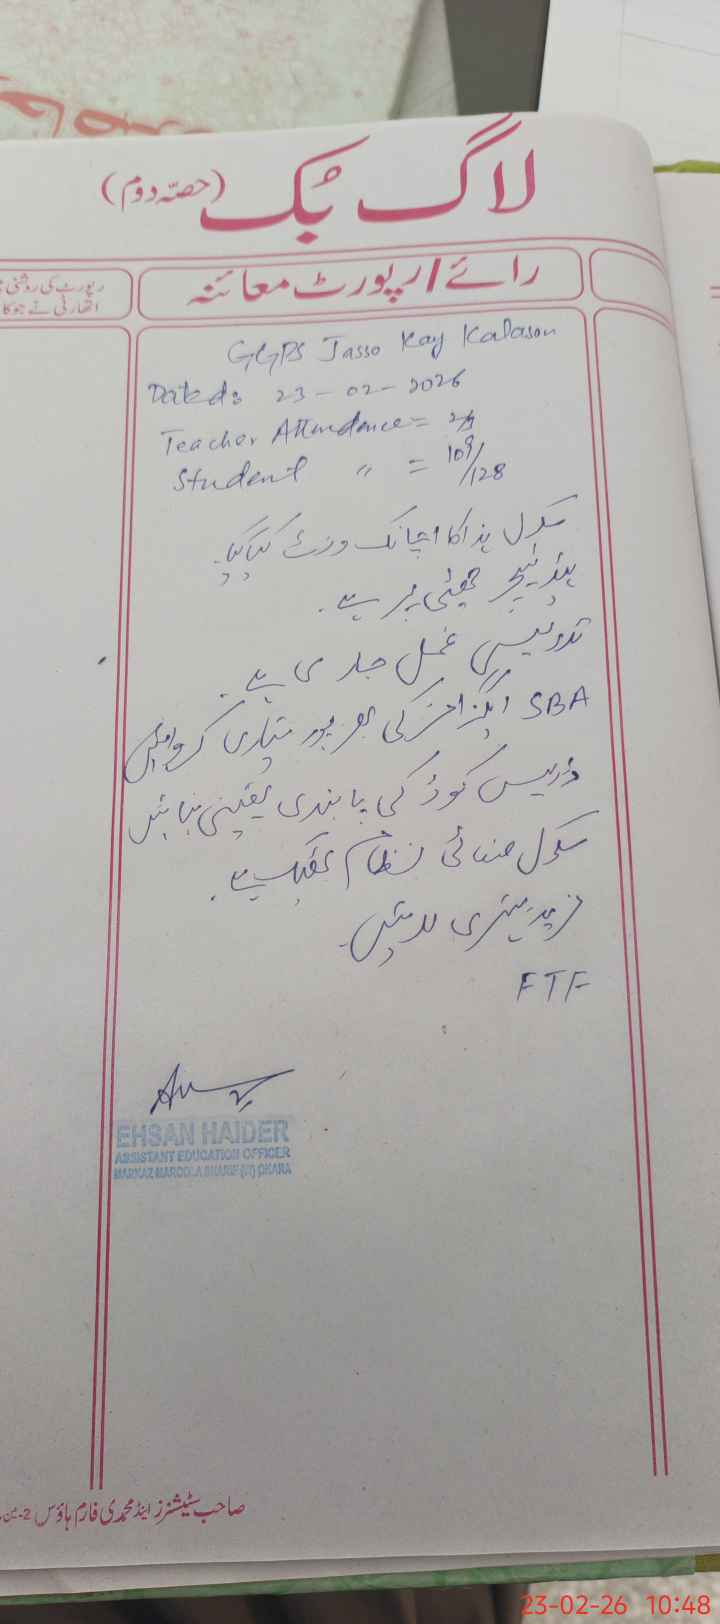 لاگ بُک (حصّہ دوم)
رائے / رپورٹ معائنہ
رپورٹ کی روشنی
اتھارٹی نے جو کا
GGPS Jasso Kay Kalason
Dated: 23-02-2026
Teacher Attendance =
Student " = 109/128
سکول ہذا کا اچانک وزٹ کیا گیا۔
ہیڈ ٹیچر چھٹی پر ہے۔
تدریسی عمل جاری ہے۔
SBA ایگزامز کی بھرپور تیاری کروائیں
ڈریس کوڈ کی پابندی یقینی بنائیں
سکول صفائی نظام ٹھیک ہے۔
مزید بہتری لائیں۔
FTF
EHSAN HAIDER
ASSISTANT EDUCATION OFFICER
MARKAZ MAROOLA SHARIF (W) OKARA
صاحب سٹیشنرز اینڈ محمدی فارم ہاؤس 2-
23-02-26 10:48